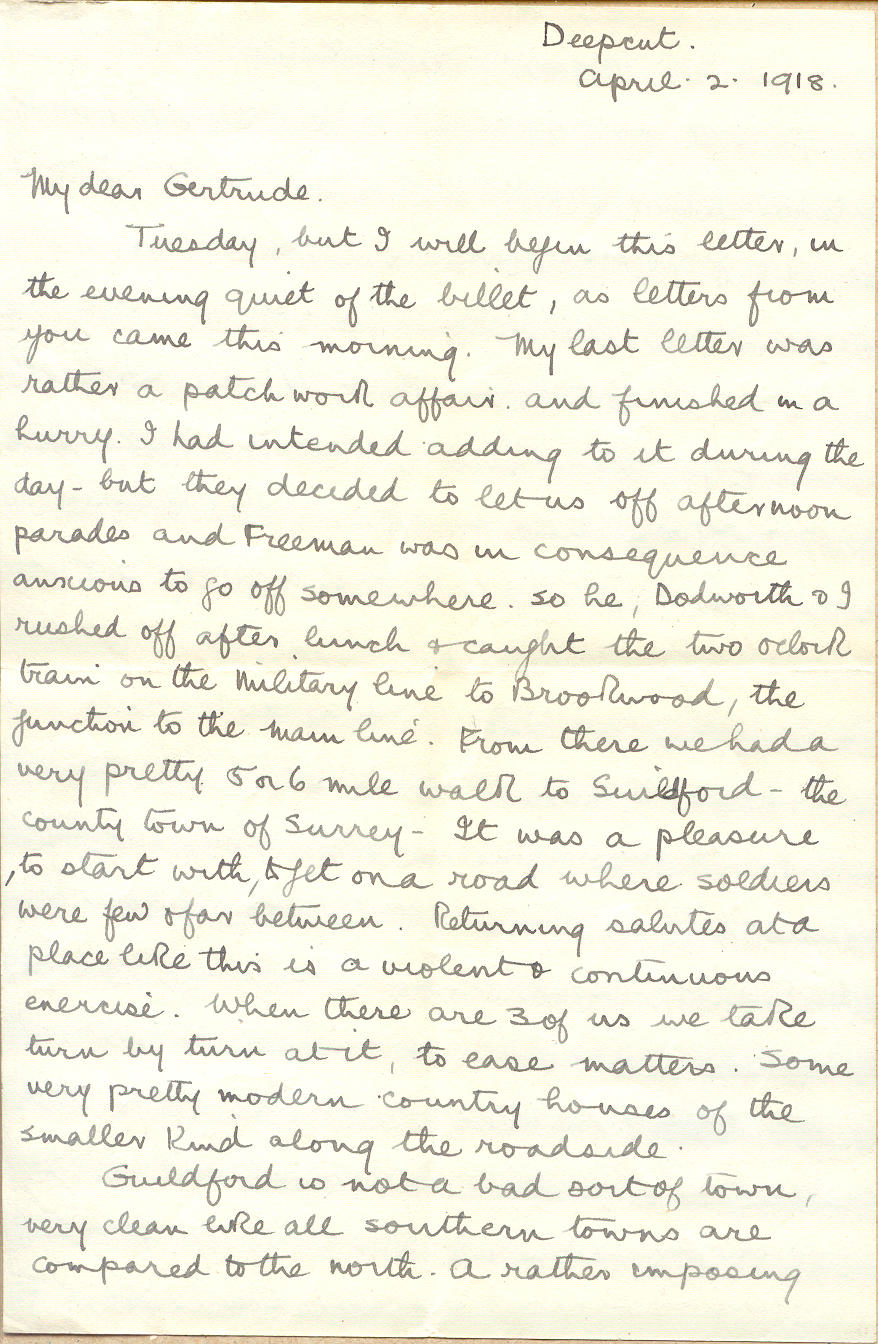 Deepcut.
April. 2. 1918.
My dear Gertrude.
Tuesday, but I will begin this letter, in
the evening quiet of the billet, as letters from
you came this morning. My last letter was
rather a patch work affair. and finished in a
hurry. I had intended adding to it during the
day - but they decided to let us off afternoon
parades and Freeman was in consequence
anxious to go off somewhere. so he, Dodworth & I
rushed off after lunch & caught the two oclock
train on the Military line to Brookwood, the
junction to the main line. From there we had a
very pretty 5 or 6 mile walk to Guildford - the
county town of Surrey - It was a pleasure
, to start with, to get on a road where soldiers
were few & far between. Returning salutes at a
place like this is a violent & continuous
exercise. When there are 3 of us we take
turn by turn at it, to ease matters. Some
very pretty modern country houses of the
smaller kind along the roadside.
Guildford is not a bad sort of town,
very clean like all southern towns are
compared to the north. A rather imposing